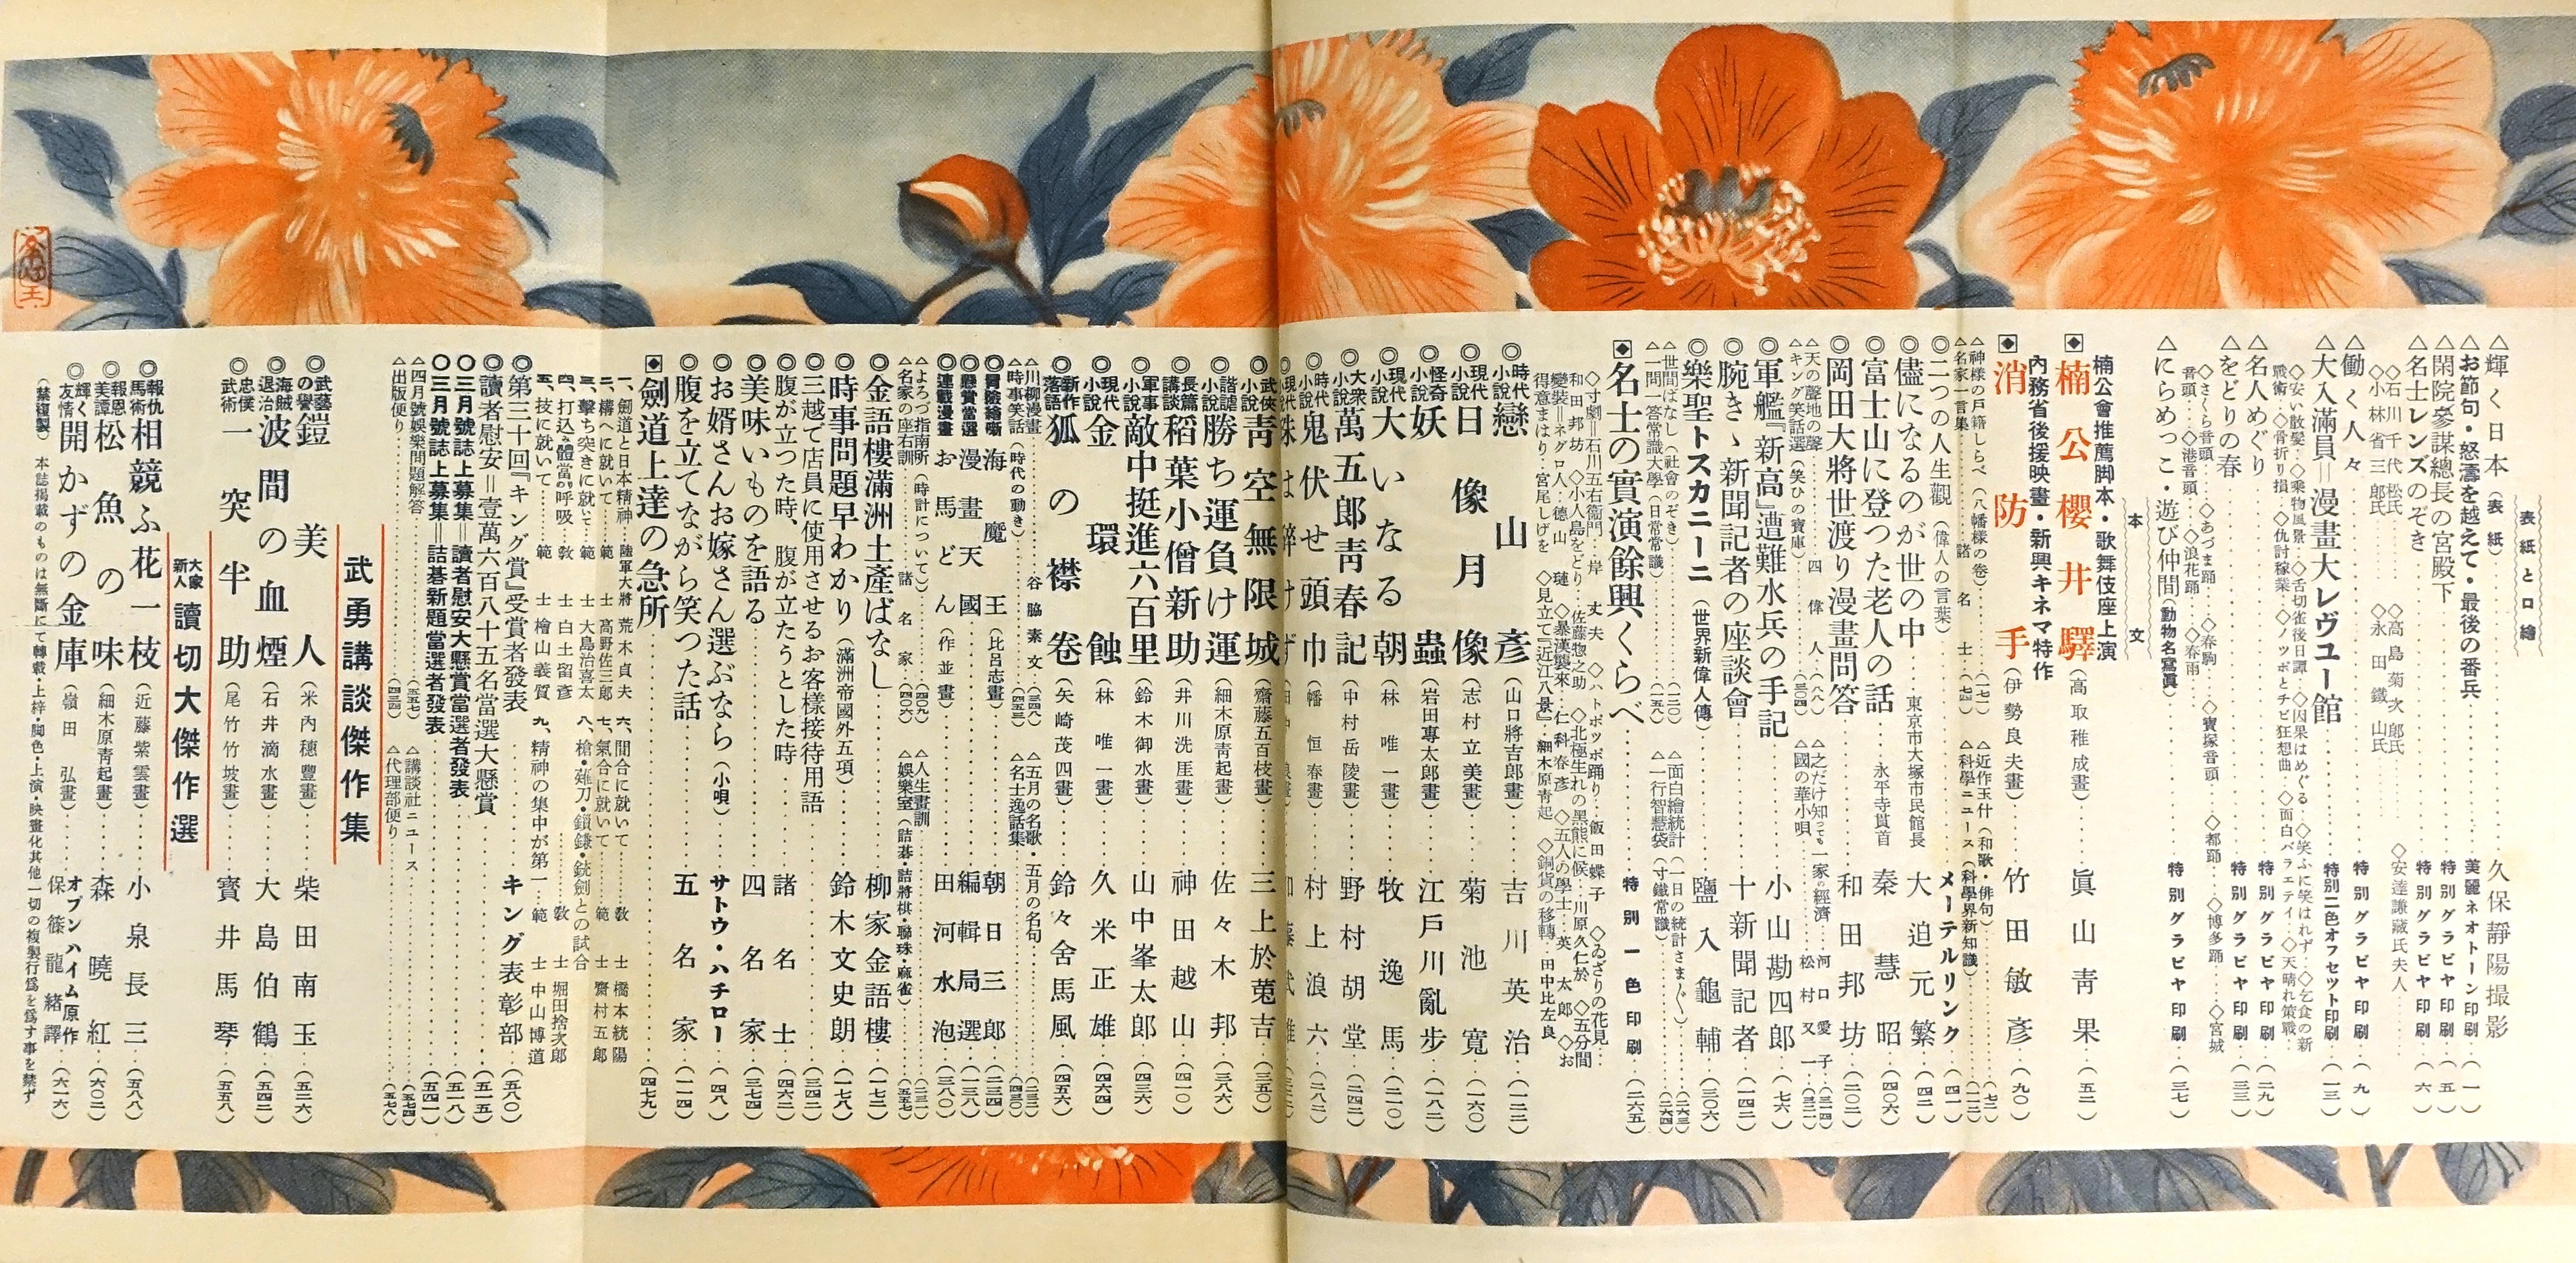 表紙と口繪
△輝く日本（表紙）……久保靜陽撮影
△お節句・怒濤を越えて・最後の番兵……美麗ネオトーン印刷（一）
△閑院參謀總長の宮殿下……特別グラビヤ印刷（五）
△名士レンズのぞき……特別グラビヤ印刷（六）
◇石川千代松氏　◇高島菊次郎氏　◇安達謙藏氏夫人
◇小林省三郎氏　◇永田鐵山氏
△働く人々……特別グラビヤ印刷（九）
△大入滿員＝漫畫大レヴユー館……特別二色オフセット印刷（一三）
◇安い散髮・◇乘物風景・◇舌切雀後日譚・◇因果はめぐる・◇笑ふに笑はれず・◇乞食の新
戰術・◇骨折り損・◇仇討稼業・◇ノッポとチビ狂想曲・◇面白バラエテイ・◇天晴れ策戰
△名人めぐり……特別グラビヤ印刷（二九）
△をどりの春……特別グラビヤ印刷（三三）
◇さくら音頭・◇あづま踊・◇春駒・◇寶塚音頭・◇都踊・◇宮城
音頭・◇港音頭・◇浪花踊・◇春雨・◇博多踊
△にらめっこ・遊び仲間（動物名寫眞）……特別グラビヤ印刷（三七）
本文
楠公會推薦脚本・歌舞伎座上演
楠公櫻井驛（高取稚成畫）……眞山靑果（五二）
內務省後援映畫・新興キネマ特作
消防手（伊勢良夫畫）……竹田敏彥（九〇）
△神樣の戸籍しらべ（八幡樣の卷）……（一七）　△近作玉什（和歌・俳句）……（七一）
△名家一言集……諸名士……（七四）　△科學ニュース（科學界新知識）……（一一二）
◎二つの人生觀（偉人の言葉）……メーテルリンク（四一）
◎儘になるのが世の中……東京市大塚市民館長　大迫元繁（四二）
◎富士山に登つた老人の話……永平寺貫首　秦慧昭（四〇六）
◎岡田大將世渡り漫畫問答……和田邦坊（二〇二）
△天の聲地の聲……四偉人……（八八）　△之だけ知つても一家の經濟……河口愛子（三一四）
△キング笑話選（笑ひの寶庫）……（三〇四）　△國の華小唄……松村又一（三二一）
◎軍艦『新高』遭難水兵の手記……小山勘四郎（七六）
◎腕きゝ新聞記者の座談會……十新聞記者（一四二）
◎樂聖トスカニーニ（世界新偉人傳）……鹽入龜輔（三〇六）
△世間ばなし（社會のぞき）……（一二〇）　△面白繪統計（一日の統計さま〴〵）……（二六三）
△一問一答常識大學（日常常識）……（一五八）　△一行智慧袋（寸鐵常識）……（二六四）
名士の實演餘興くらべ……特別一色印刷（二六五）
◇寸劇＝石川五右衞門・岸丈夫　◇ハトポッポ踊り・飯田蝶子　◇ゐざりの花見・
和田邦坊　◇小人島をどり・佐藤惣之助　◇北極生れの黑熊に候・川原久仁於　◇五分間
變裝＝ネグロ人・德山璉　◇暴漢襲來・仁科春彥　◇五人の學士・英太郎　◇お
得意まはり・宮尾しげを　◇見立て『近江八景』・細木原靑起　◇銅貨の移轉・田中比左良
◎時代小說　戀山彥（山口將吉郎畫）……吉川英治（一二二）
◎現代小說　日像月像（志村立美畫）……菊池寬（一六〇）
◎怪奇小說　妖蟲（岩田專太郎畫）……江戶川亂步（一八二）
◎現代小說　大いなる朝（林唯一畫）……牧逸馬（二一〇）
◎大衆小說　萬五郎靑春記（中村岳陵畫）……野村胡堂（二四二）
◎時代小說　鬼伏せ頭巾（幡恒春畫）……村上浪六（二八二）
◎武俠小說　靑空無限城（齋藤五百枝畫）……三上於菟吉（三五〇）
◎諧謔小說　勝ち運負け運（細木原靑起畫）……佐々木邦（三八六）
◎長篇講談　稻葉小僧新助（井川洗厓畫）……神田越山（四一〇）
◎軍事小說　敵中挺進六百里（鈴木御水畫）……山中峯太郎（四三六）
◎現代小說　金環蝕（林唯一畫）……久米正雄（四六四）
◎新作落語　狐の襟卷（矢崎茂四畫）……鈴々舍馬風（四五六）
△川柳漫畫……谷脇素文（三四八）　△五月の名歌・五月の名句……（三三二）
△時事笑話（時代の動き）……（四五三）　△名士逸話集……（四三〇）
◎冒險繪噺　海魔王（比呂志畫）……朝日三郎（二三四）
◎懸賞當選　漫畫天國……編輯局選（一三八）
◎連載漫畫　お馬どん（作並畫）……田河水泡（三八〇）
△よろづ指南所（時計について）……（四〇九）　△人生畫訓……（三三一）
△名家の座右訓……諸名家……（四〇六）　△娛樂室（詰碁・詰將棋・聯珠・麻雀）……（五五七）
◎金語樓滿洲土產ばなし……柳家金語樓（一七二）
◎時事問題早わかり（滿洲帝國外五項）……鈴木文史朗（一七八）
◎三越で店員に使用させるお客樣接待用語……（三四二）
◎腹が立つた時、腹が立たうとした時……諸名士（四六二）
◎美味いものを語る……四名家（三七四）
◎お婿さんお嫁さん選ぶなら（小唄）……サトウ・ハチロー（四八）
◎腹を立てながら笑つた話……五名家（一一四）
劍道上達の急所……（四七九）
一、劍道と日本精神・陸軍大將　荒木貞夫　六、間合に就いて……敎士　橋本統陽
二、構へに就いて……範士　高野佐三郎　七、氣合に就いて……範士　齋村五郎
三、擊ち突きに就いて……範士　大島治喜太　八、槍・薙刀・鎖鎌・銃劍との試合
四、打込み體當の呼吸……敎士　白土留彥　敎士　堀田捨次郎
五、技に就いて……範士　檜山義質　九、精神の集中が第一……範士　中山博道
◎第三十回『キング賞』受賞者發表……キング表彰部（五八〇）
◎讀者慰安＝壹萬六百八十五名當選大懸賞……（五一五）
〇三月號誌上募集＝讀者慰安大懸賞當選者發表……（五一八）
〇三月號誌上募集＝詰碁新題當選者發表……（五四一）
△四月號娛樂問題解答……（五五七）　△講談社ニュース……（五七四）
△出版便り……（四三四）　△代理部便り……（五七八）
武勇講談傑作集
◎武藝の譽　鎧美人（米內穗豐畫）……柴田南玉（五二六）
◎海賊退治　波間の血煙（石井滴水畫）……大島伯鶴（五四二）
◎忠僕武術　一突半助（尾竹竹坡畫）……寶井馬琴（五五八）
大家新人　讀切大傑作選
◎報仇馬術　相競ふ花一枝（近藤紫雲畫）……小泉長三（五八八）
◎報恩美譚　松魚の味（細木原靑起畫）……森曉紅（六〇二）
◎輝く友情　開かずの金庫（嶺田弘畫）……オブンハイム原作　保篠龍緖譯（六一六）
（禁複製）本誌揭載のものは無斷にて轉載・上梓・脚色・上演・映畫化其他一切の複製行爲を爲す事を禁ず